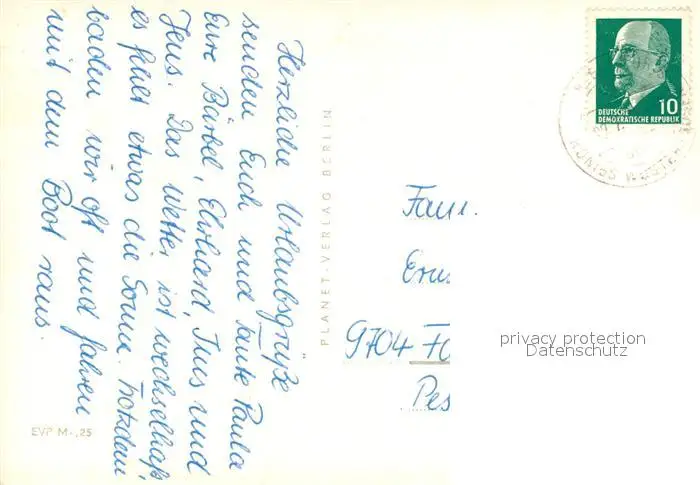 Herzliche Urlaubsgrüße
senden Euch und Tante Paula
Eure Bärbel, Ehrhard, Ines und
Jens. Das Wetter ist wechselhaft
es fehlt etwas die Sonne. Trotzdem
baden wir oft und fahren
mit dem Boot raus.
EVP M -,25
PLANET-VERLAG BERLIN
10
DEUTSCHE
DEMOKRATISCHE REPUBLIK
KÖNIGS WUSTER
Fam.
9704
privacy protection
Datenschutz